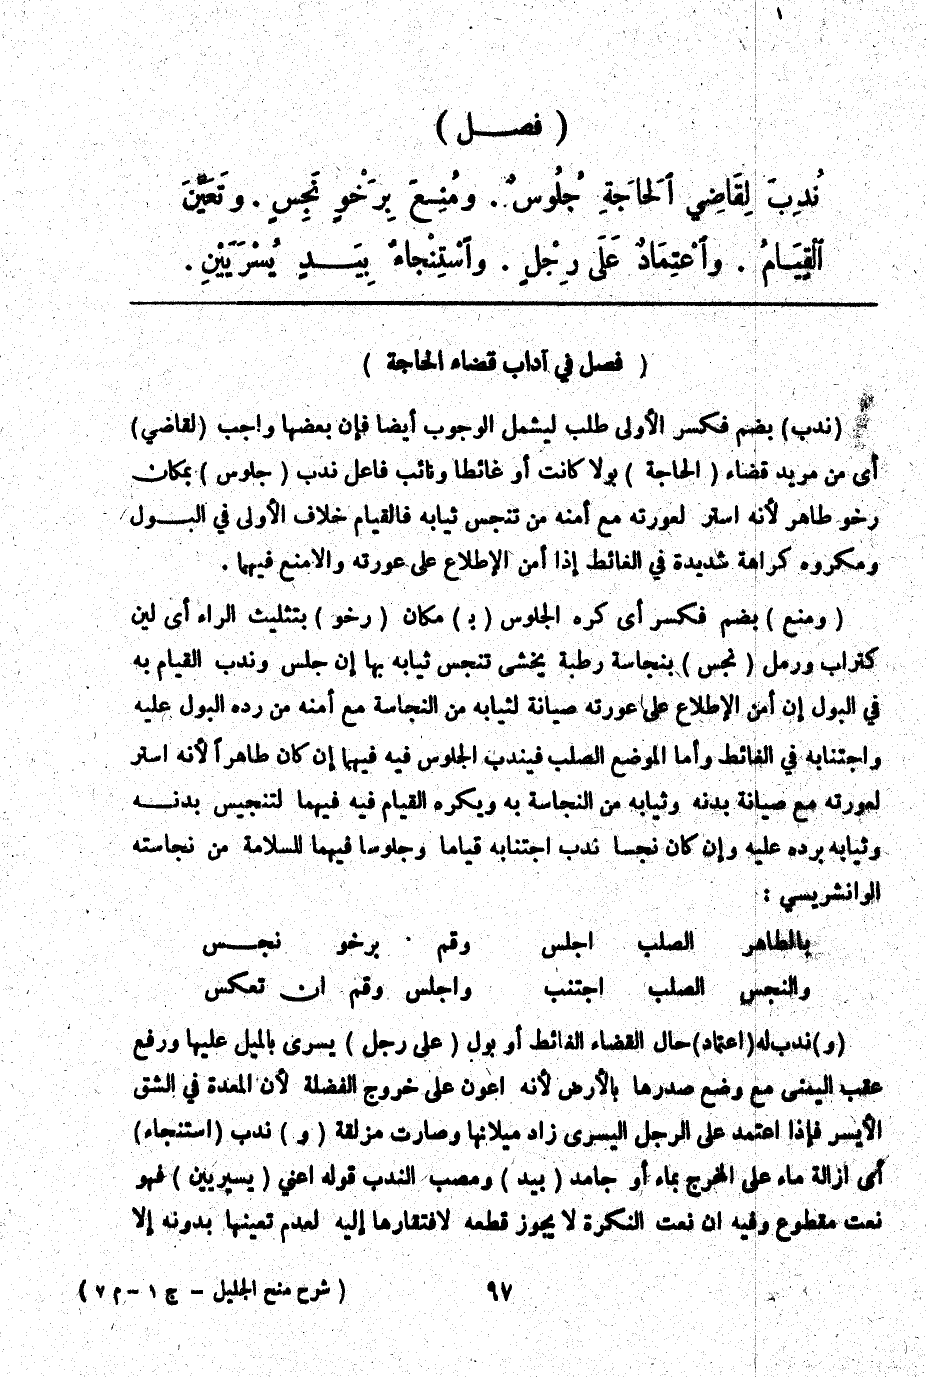 ( فصـــل )
نُدِبَ لِقَاضِي ٱلحَاجَةِ جُلُوسٌ . وَمُنِعَ بِرَخْوٍ نَجِسٍ . وتَعَيَّنَ
ٱلْقِيَامُ . وٱعْتِمَادٌ عَلَى رِجْلٍ . وٱسْتِنْجاءٌ بِيَـــدٍ يُسْرَيَيْنِ .
( فصل في آداب قضاء الحاجة )
(ندب) بضم فكسر الأولى طلب ليشمل الوجوب أيضا فإن بعضها واجب (لقاضي)
أى من مريد قضاء ( الحاجة ) بولا كانت أو غائطا ونائب فاعل ندب ( جلوس ) بمكان
رخو طاهر لأنه استر لعورته مع أمنه من تنجس ثيابه فالقيام خلاف الأولى في البـــول
ومكروه كراهة شديدة في الغائط إذا أمن الإطلاع على عورته والامنع فيهما .
( ومنع ) بضم فكسر أى كره الجلوس ( بـ ) مكان ( رخو ) بتثليث الراء أى لين
كتراب ورمل ( نجس ) بنجاسة رطبة يخشى تنجس ثيابه بها إن جلس وندب القيام به
في البول إن أمن الإطلاع على عورته صيانة لثيابه من النجاسة مع أمنه من رده البول عليه
واجتنابه في الغائط وأما الموضع الصلب فيندب الجلوس فيه فيهما إن كان طاهراً لأنه استر
لعورته مع صيانة بدنه وثيابه من النجاسة به ويكره القيام فيه فيهما لتنجيس بدنـــه
وثيابه برده عليه وإن كان نجسا ندب اجتنابه قياما وجلوسا فيهما للسلامة من نجاسته
الوانشريسي :
بالطاهر الصلب اجلس وقم برخو نجـــس
والنجس الصلب اجتنب واجلس وقم ان تعكس
(و)ندب له(اعتماد)حال القضاء الغائط أو بول ( على رجل ) يسرى بالميل عليها ورفع
عقب اليمنى مع وضع صدرها بالأرض لأنه اعون على خروج الفضلة لأن المعدة في الشق
الأيسر فإذا اعتمد على الرجل اليسرى زاد ميلانها وصارت مزلقة ( و ) ندب (استنجاء)
أى ازالة ماء على المخرج بماء أو جامد ( بيد ) ومصب الندب قوله اعني ( يسريين ) فهو
نعت مقطوع وفيه ان نعت النكرة لا يجوز قطعه لافتقارها إليه لعدم تعينها بدونه إلا
٩٧
( شرح منح الجليل – ج ١ – م ٧ )